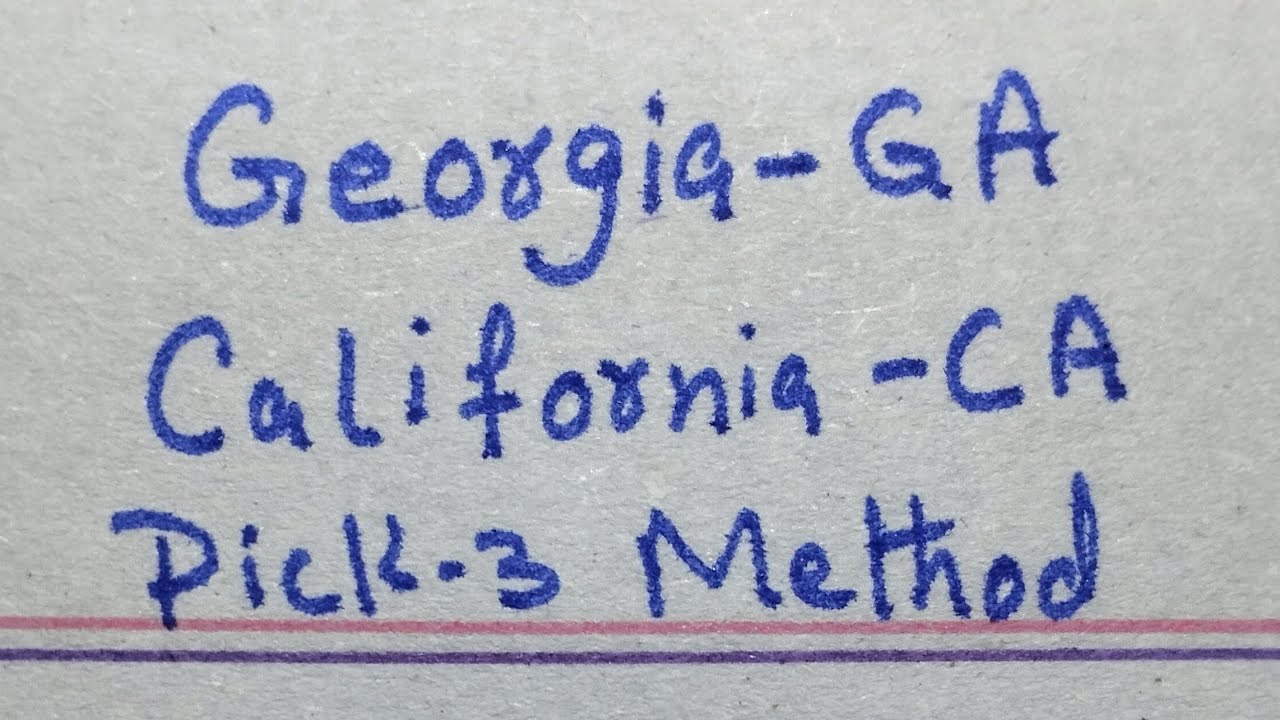 Georgia-GA
California-CA
Pick-3 Method